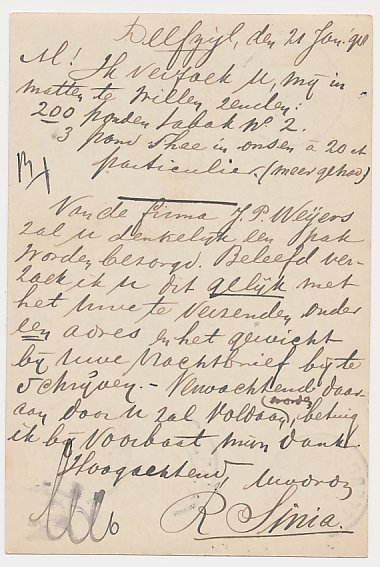 Delfzijl, den 21 Jan. 98
M! Ik verzoek U, mij in
matten te willen zenden:
200 ponden tabak No 2.
3 pond thee in onsen à 20 ct
particulier. (meer gehad)
Van de firma J. P. Weijers
zal U denkelijk een pak
worden bezorgd. Beleefd ver-
zoek ik U dit gelijk met
het Uwe te verzenden, onder
een adres en het gewicht
bij Uwe vrachtbrief bij te
schrijven. - Verwachtende daar-
aan door U zal voldaan (worden), betuig
ik bij voorbaat mijn dank.
Hoogachtend,
R Sinia.